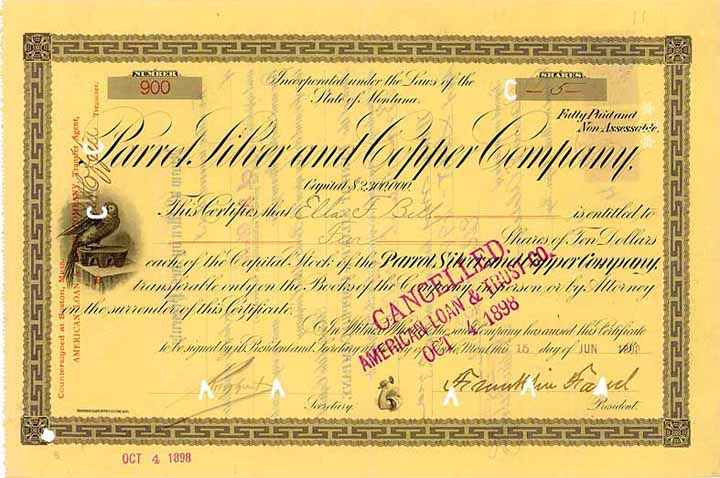 NUMBER
900
Incorporated under the Laws of the
State of Montana.
SHARES
5
Fully Paid and
Non Assessable.
Parrot Silver and Copper Company.
Capital $2,300,000.
This Certifies that Ella F. Bell is entitled to
Shares of Ten Dollars
each of the Capital Stock of the Parrot Silver and Copper Company,
transferable only on the Books of the Company in person or by Attorney
on the surrender of this Certificate.
In Witness Whereof, the said Company has caused this Certificate
to be signed by its President and Secretary
this 15 day of JUN
Secretary.
Franklin Farrel
President.
CANCELLED
AMERICAN LOAN & TRUST CO.
OCT 4 1898
Countersigned at Boston, Mass.
AMERICAN LOAN COMPANY, Transfer Agent,
Treasurer.
OCT 4 1898